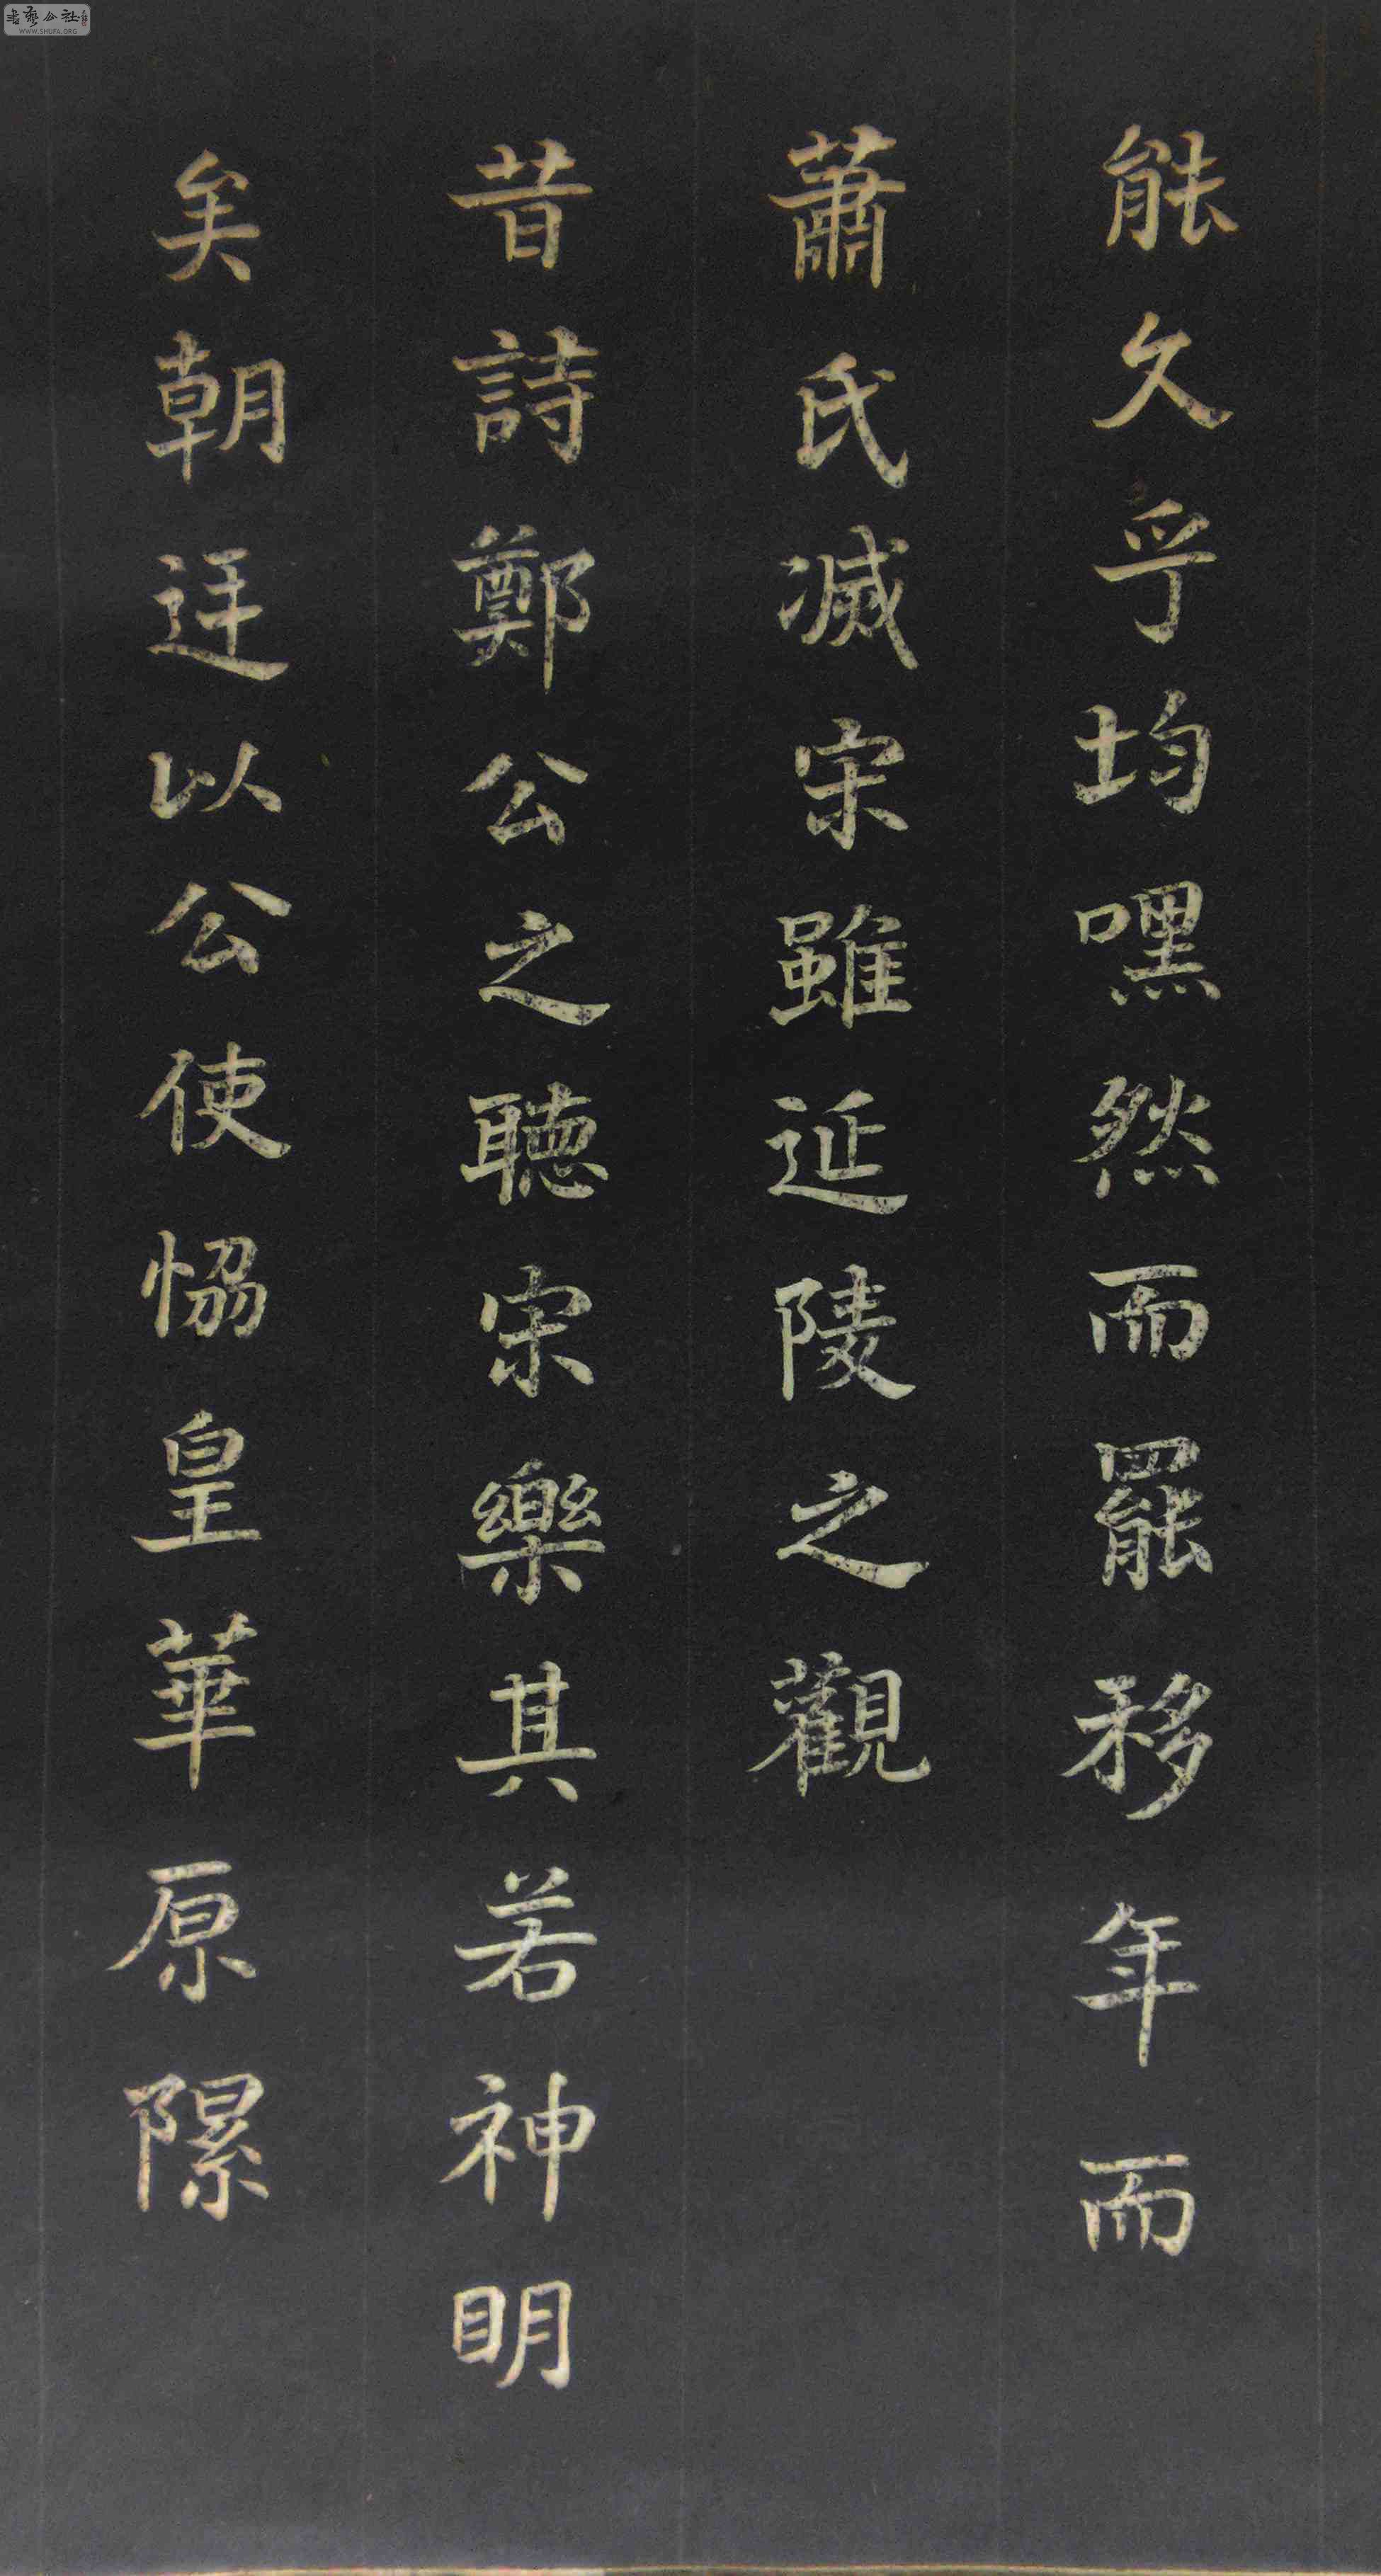 能久乎均嘿然而罷移年而
蕭氏滅宋雖延陵之觀
昔詩鄭公之聽宋樂其若神明
矣朝廷以公使恊皇華原隰
書藝公社
WWW.SHUFA.ORG